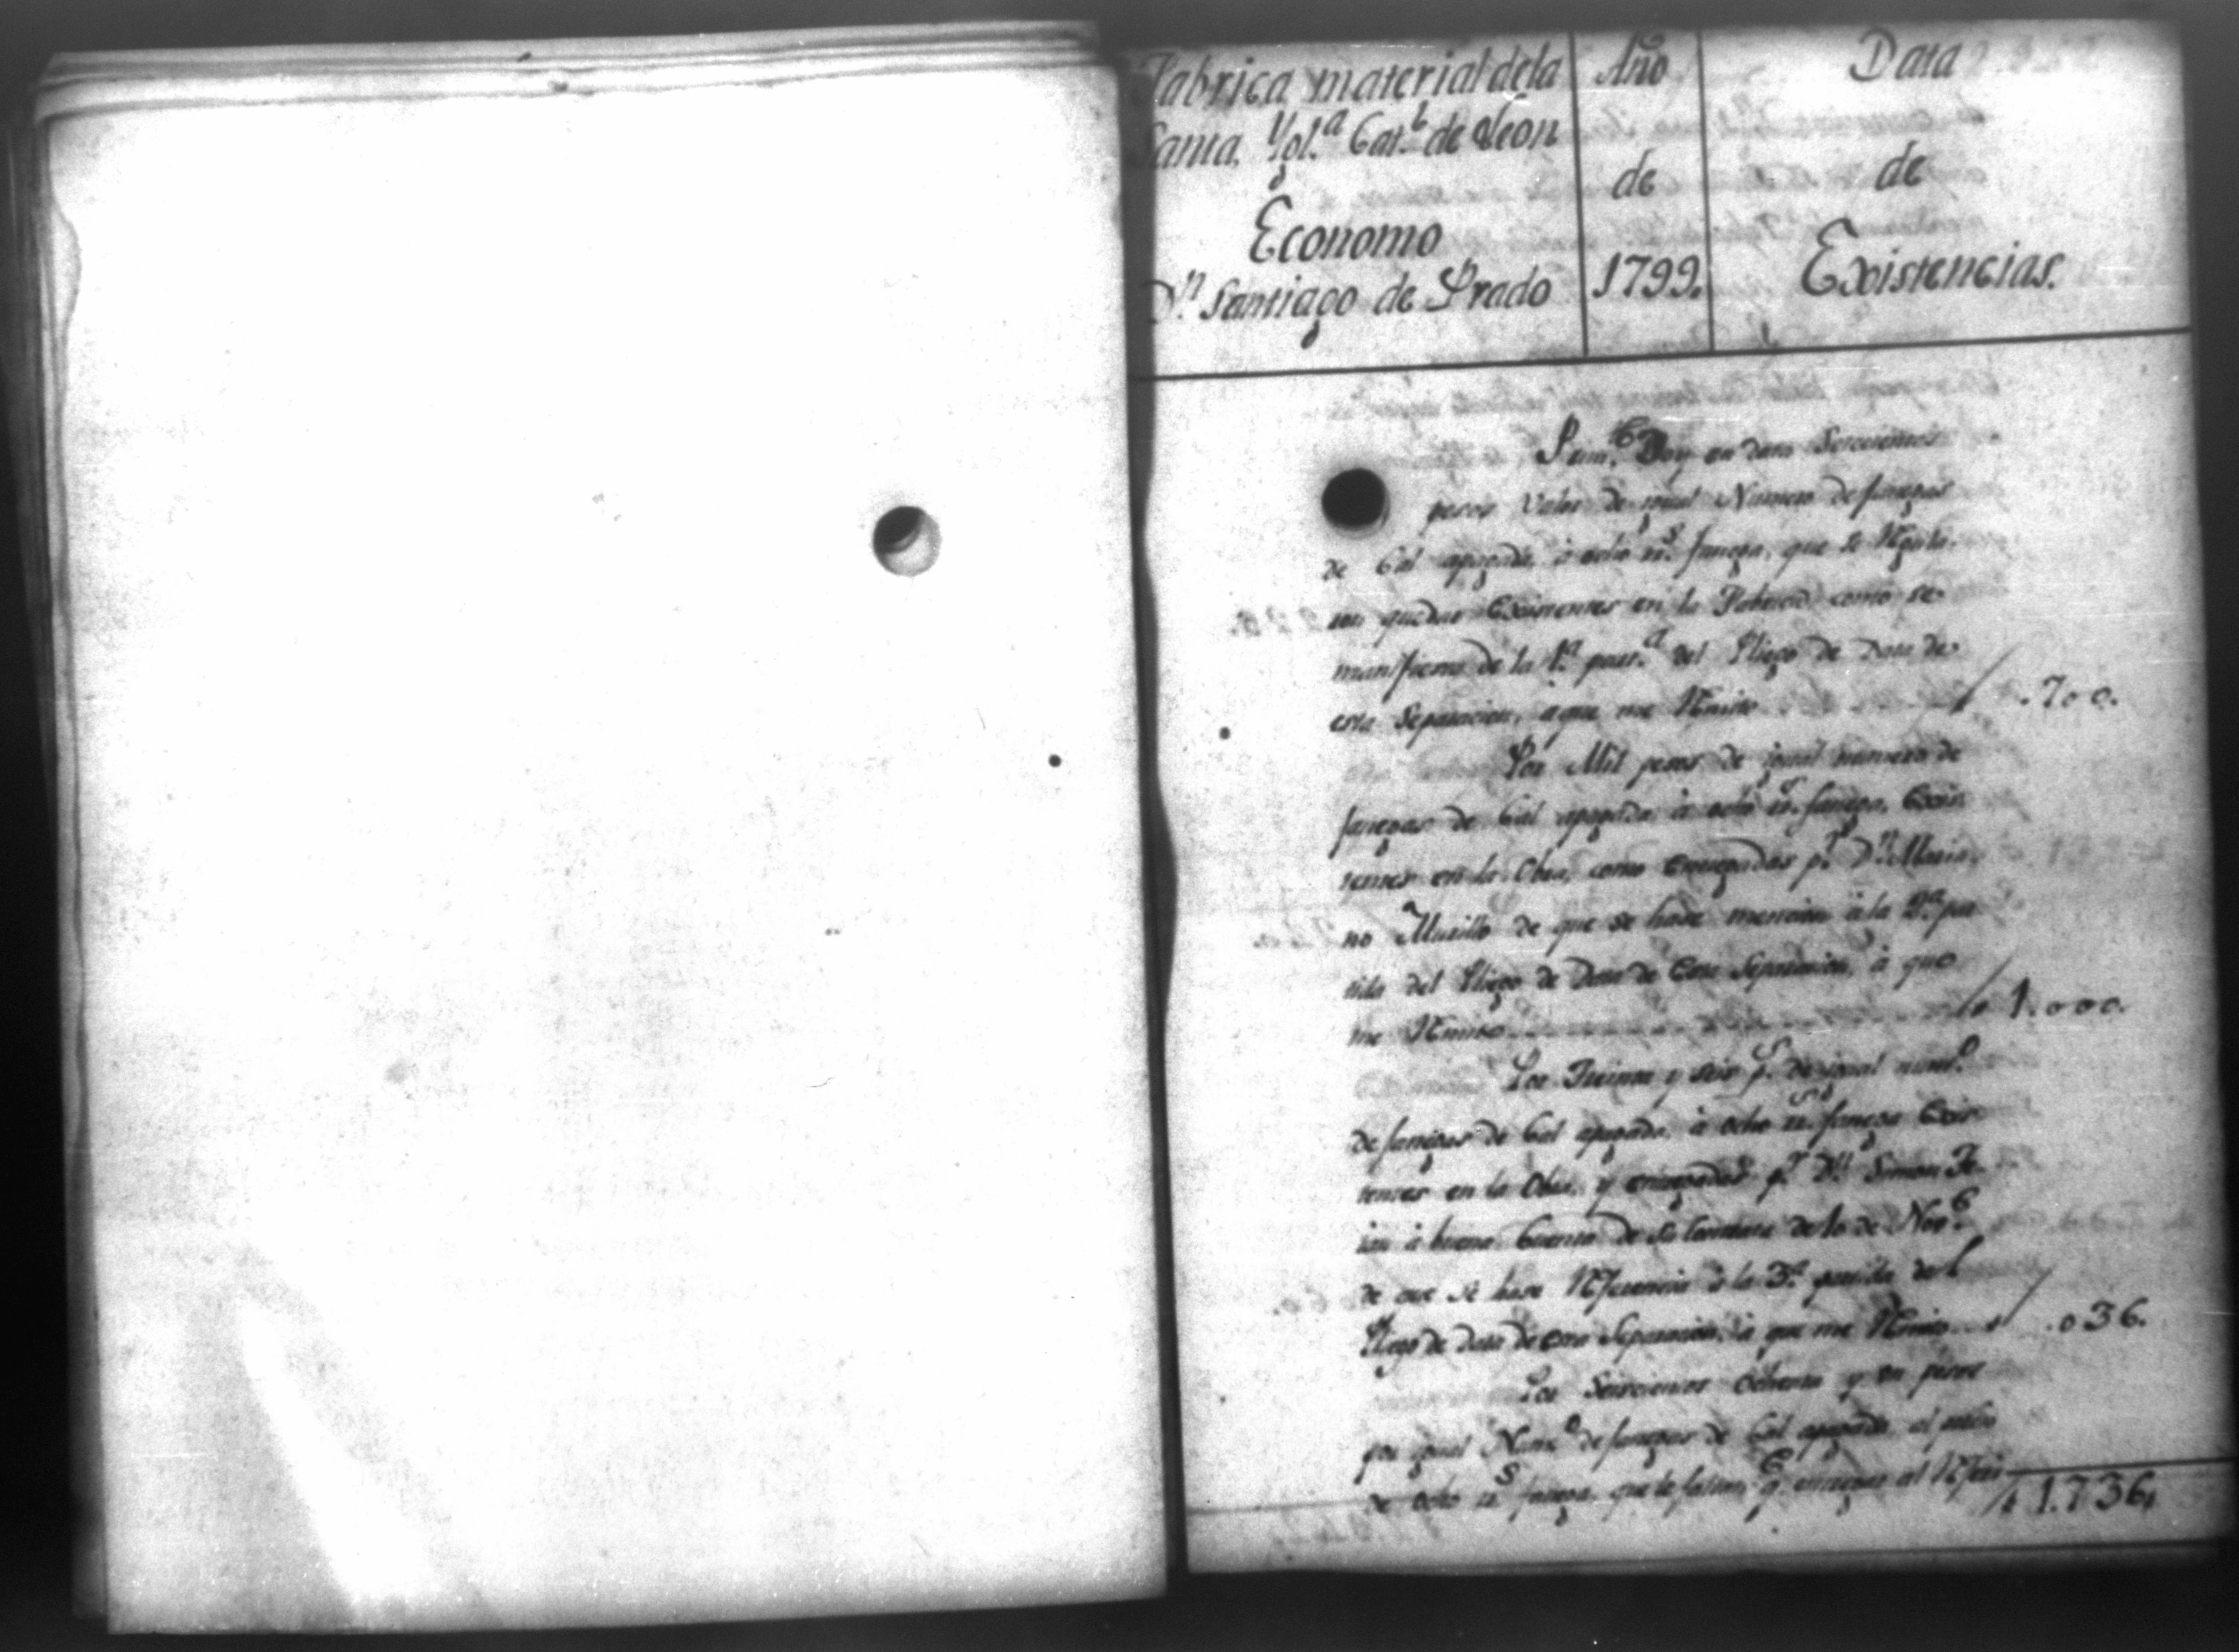 Fabrica material de la
Santa Ygl.ª Cat.l de Leon
Economo
D.n Santiago de Prado
Año
de
1799.
Data
de
Existencias.
Prim.te Doy en data Setecientos
pesos valor de igual Numero de fanegas
de Cal apagada, à ocho rr.s fanega, que se
quedan Existentes en la Fabrica como se
manifiesta de la 1.ª part.ª del Pliego de Data de
esta Separacion, à que me Remito .700.
Por Mil pesos de igual numero de
fanegas de Cal apagada à ocho rr.s fanega, Exis
tentes en la Obra, como entregadas p.r D.n Maria
no Murillo de que se hase mencion à la 2.ª par
tida del Pliego de Data de Esta Separacion, à que
me Remito 1.000.
Por Treinta y seis p.s de igual num.o
de fanegas de Cal apagada, à ocho rr.s fanega Exis
tentes en la Obra, y entregadas p.r D.n Simon
à buena Cuenta de su Contrata de 10 de Nov.e
de que se hase Referencia à la 3.ª partida del
Pliego de Data de esta Separacion, à que me Remito .036.
Por Seiscientos Ochenta y un pesos
por igual Num.o de fanegas de Cal apagada al
de ocho rr.s fanega, que le faltan q.e entregar al
1.736,